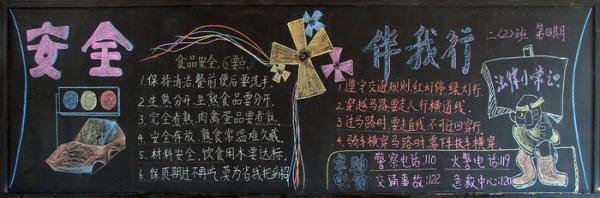 安全
伴我行
二〈2〉班 第 期
食品安全,6要点
1.保持清洁,餐前便后要洗手.
2.生熟分开,生熟食品要分开.
3.完全煮熟,肉禽蛋品要煮熟.
4.安全存放,熟食常温难久藏.
5.材料安全,饮食用水要达标.
6.保质期过不再听,要为省钱把病招
1遵守交通规则,红灯停,绿灯行
2.穿越马路,要走人行横道线.
3.过马路时,要走直线,不可迂回穿行.
4.骑车横穿马路时,需下车扶车横穿
求助电话
警察电话:110 火警电话:119
交通事故:122 急救中心:120
法律小常识